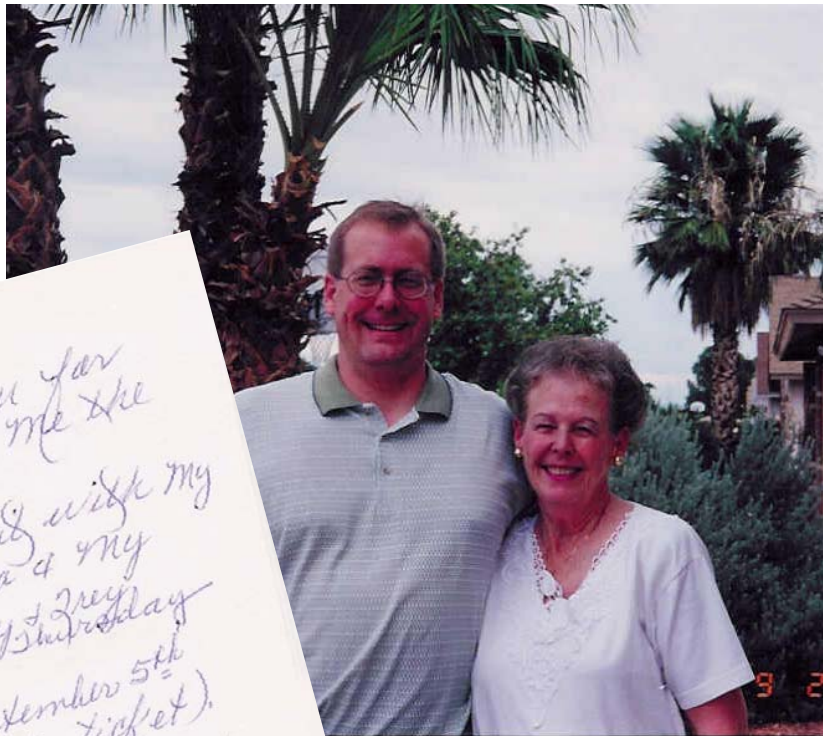 for
me the
with my
& my
& Trey
Thursday
September 5th
ticket).
9 2